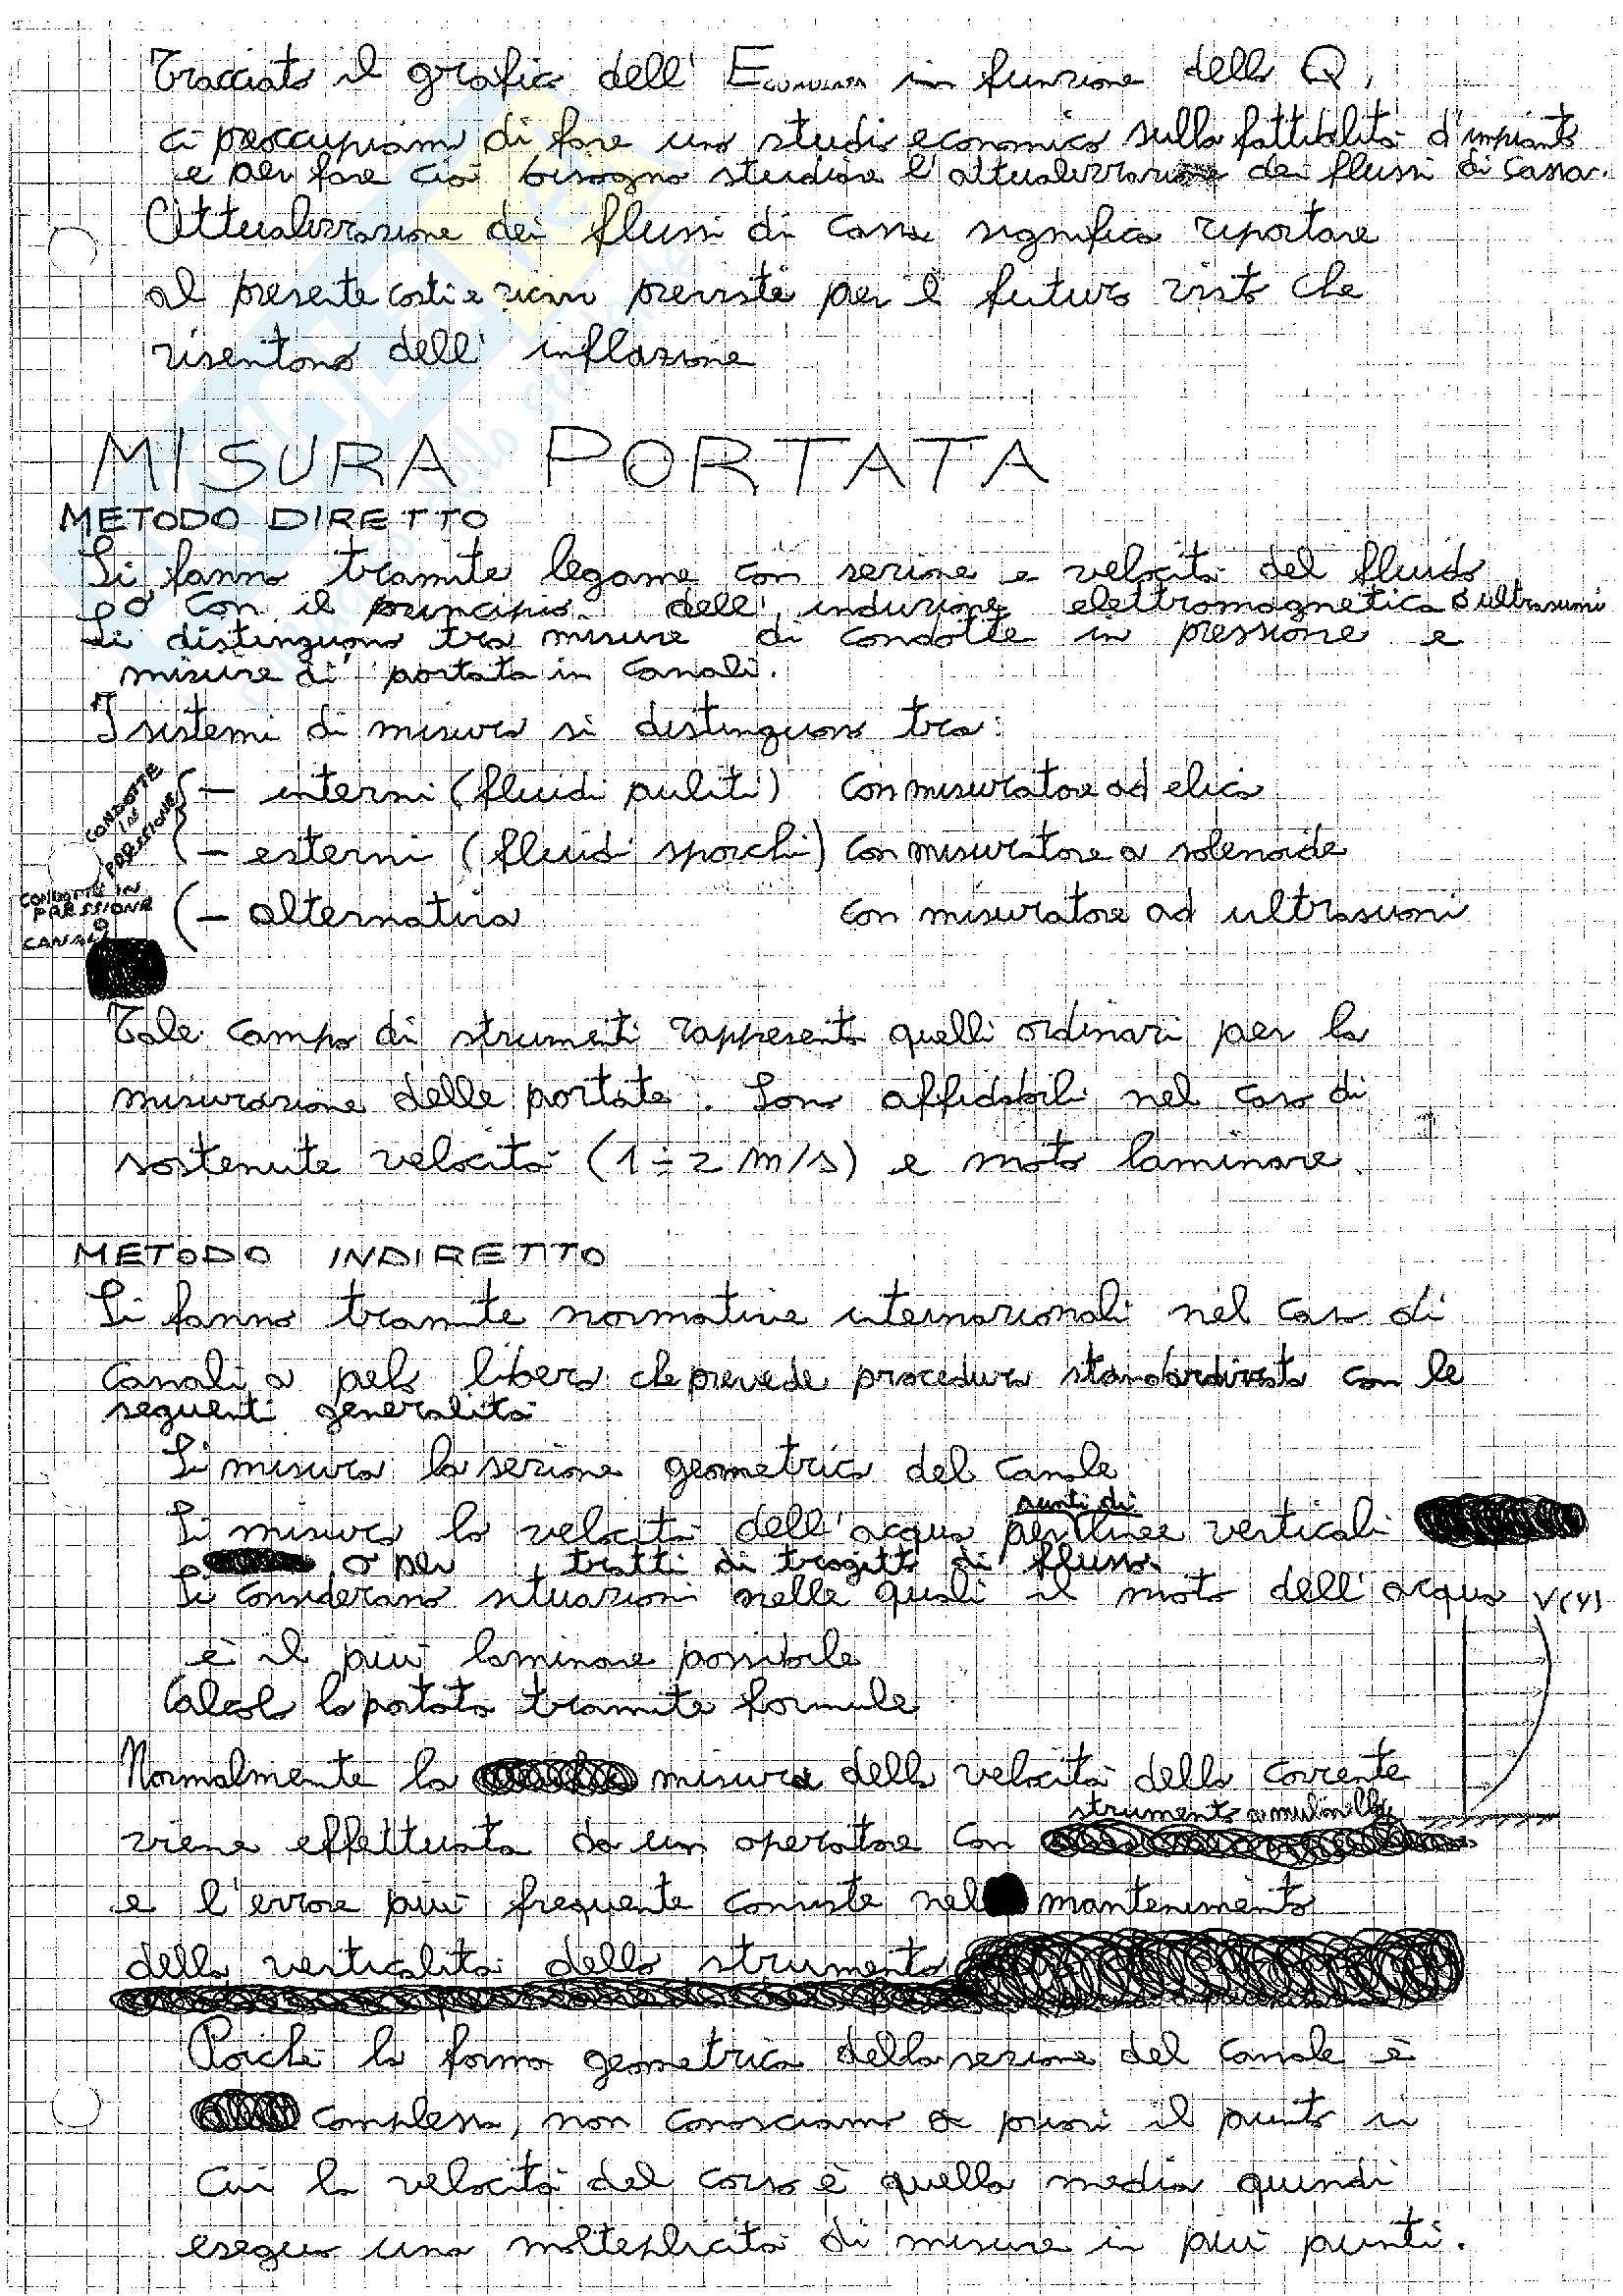 Tracciato il grafico dell' E CUMULATA in funzione della Q,
ci preoccupiam di fare uno studio economico sulla fattibilità d'impianto
e per fare ciò bisogna studiare l'attualizzazione dei flussi di cassa.
Attualizzazione dei flussi di cassa significa riportare
al presente costi e ricavi previsti per il futuro visto che
risentono dell' inflazione
MISURA PORTATA
METODO DIRETTO
Si fanno tramite legame con sezione e velocità del fluido
o con il principio dell' induzione elettromagnetica o ultrasuoni
Si distinguono tra misure di condotte in pressione e
misure di portata in canali.
I sistemi di misura si distinguono tra:
CONDOTTE IN PRESSIONE
- interni (fluidi puliti) con misuratore ad elica
- esterni (fluidi sporchi) con misuratore a solenoide
CONDOTTE IN PRESSIONE O CANALI
- alternativa con misuratore ad ultrasuoni
Tale campo di strumenti rappresenta quelli ordinari per la
misurazione delle portate. Sono affidabili nel caso di
sostenute velocità (1÷2 m/s) e moto laminare.
METODO INDIRETTO
Si fanno tramite normative internazionali nel caso di
canali a pelo libero che prevede procedura standardizzata con le
seguenti generalità
Si misura la sezione geometrica del canale
Si misura la velocità dell'acqua per punti di linee verticali
o per tratti di tragitto di flusso.
Si considerano situazioni nelle quali il moto dell'acqua
V(y)
è il più laminare possibile
Calcolo la portata tramite formule
Normalmente la misura della velocità della corrente
viene effettuata da un operatore con strumento a mulinello
e l'errore più frequente consiste nel mantenimento
della verticalità dello strumento
Poiché la forma geometrica della sezione del canale è
complessa, non conosciamo a priori il punto in
cui la velocità del corso è quella media quindi
eseguo una molteplicità di misure in più punti.